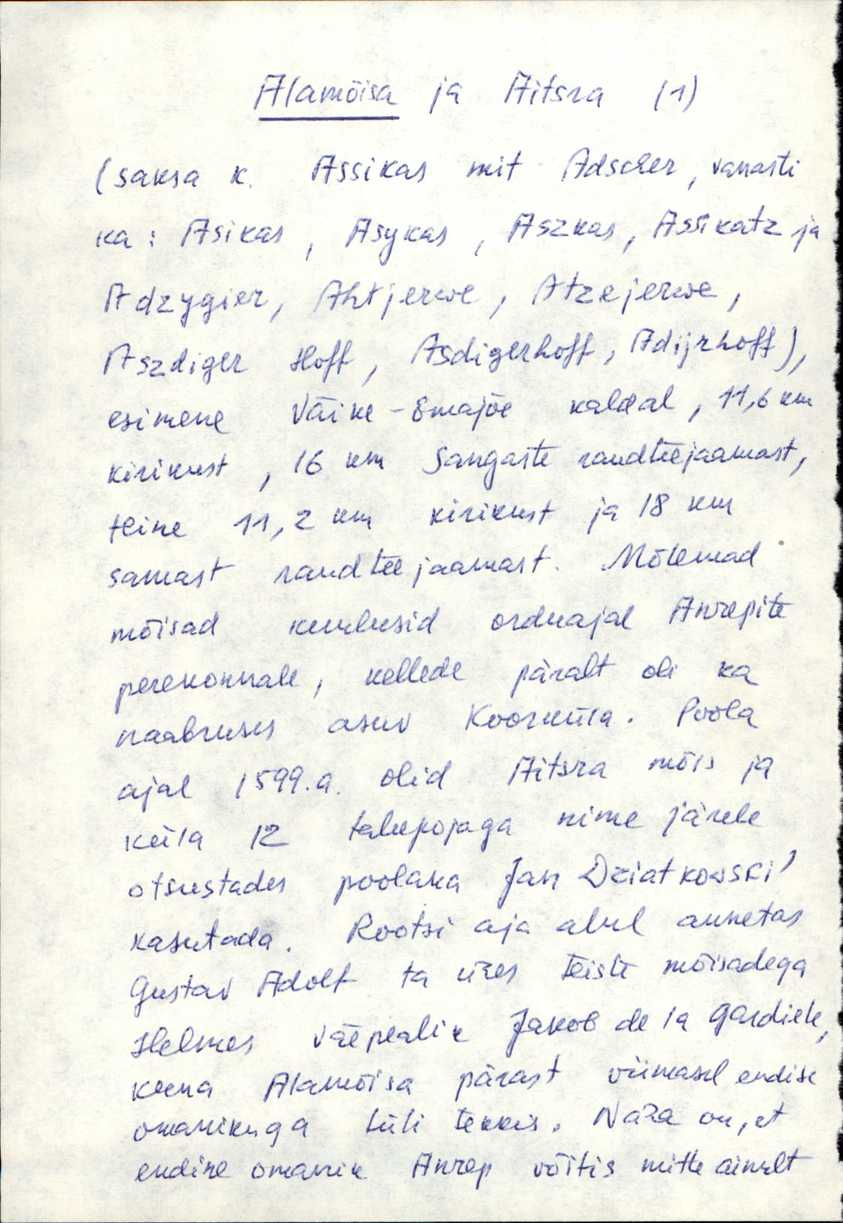 Alamõisa ja Aitsra (1)
(saksa k. Assikas mit Adscher, vanasti
ka: Asikas, Asykas, Aszkas, Assikatz ja
Adzygier, Ahtjerwe, Atzejerwe,
Aszdiger Hoff, Asdigerhoff, Adijrhoff),
esimene Väike-Emajõe kaldal, 11,6 km
kirikust, 16 km Sangaste raudteejaamast,
teine 11,2 km kirikust ja 18 km
samast raudteejaamast. Mõlemad
mõisad kuulusid orduajal Anrepite
perekonnale, kellede päralt oli ka
naabruses asuv Koorküla. Poola
ajal 1599.a. olid Aitsra mõis ja
küla 12 talupojaga nime järele
otsustades poolaka Jan Dziatkowski'
kasutada. Rootsi aja alul annetas
Gustav Adolf ta ühes teiste mõisadega
Helmes väepealik Jakob de la Gardiele,
kuna Alamõisa pärast viimasel endise
omanikuga tüli tekkis. Näha on, et
endine omanik Anrep võitis mitte ainult